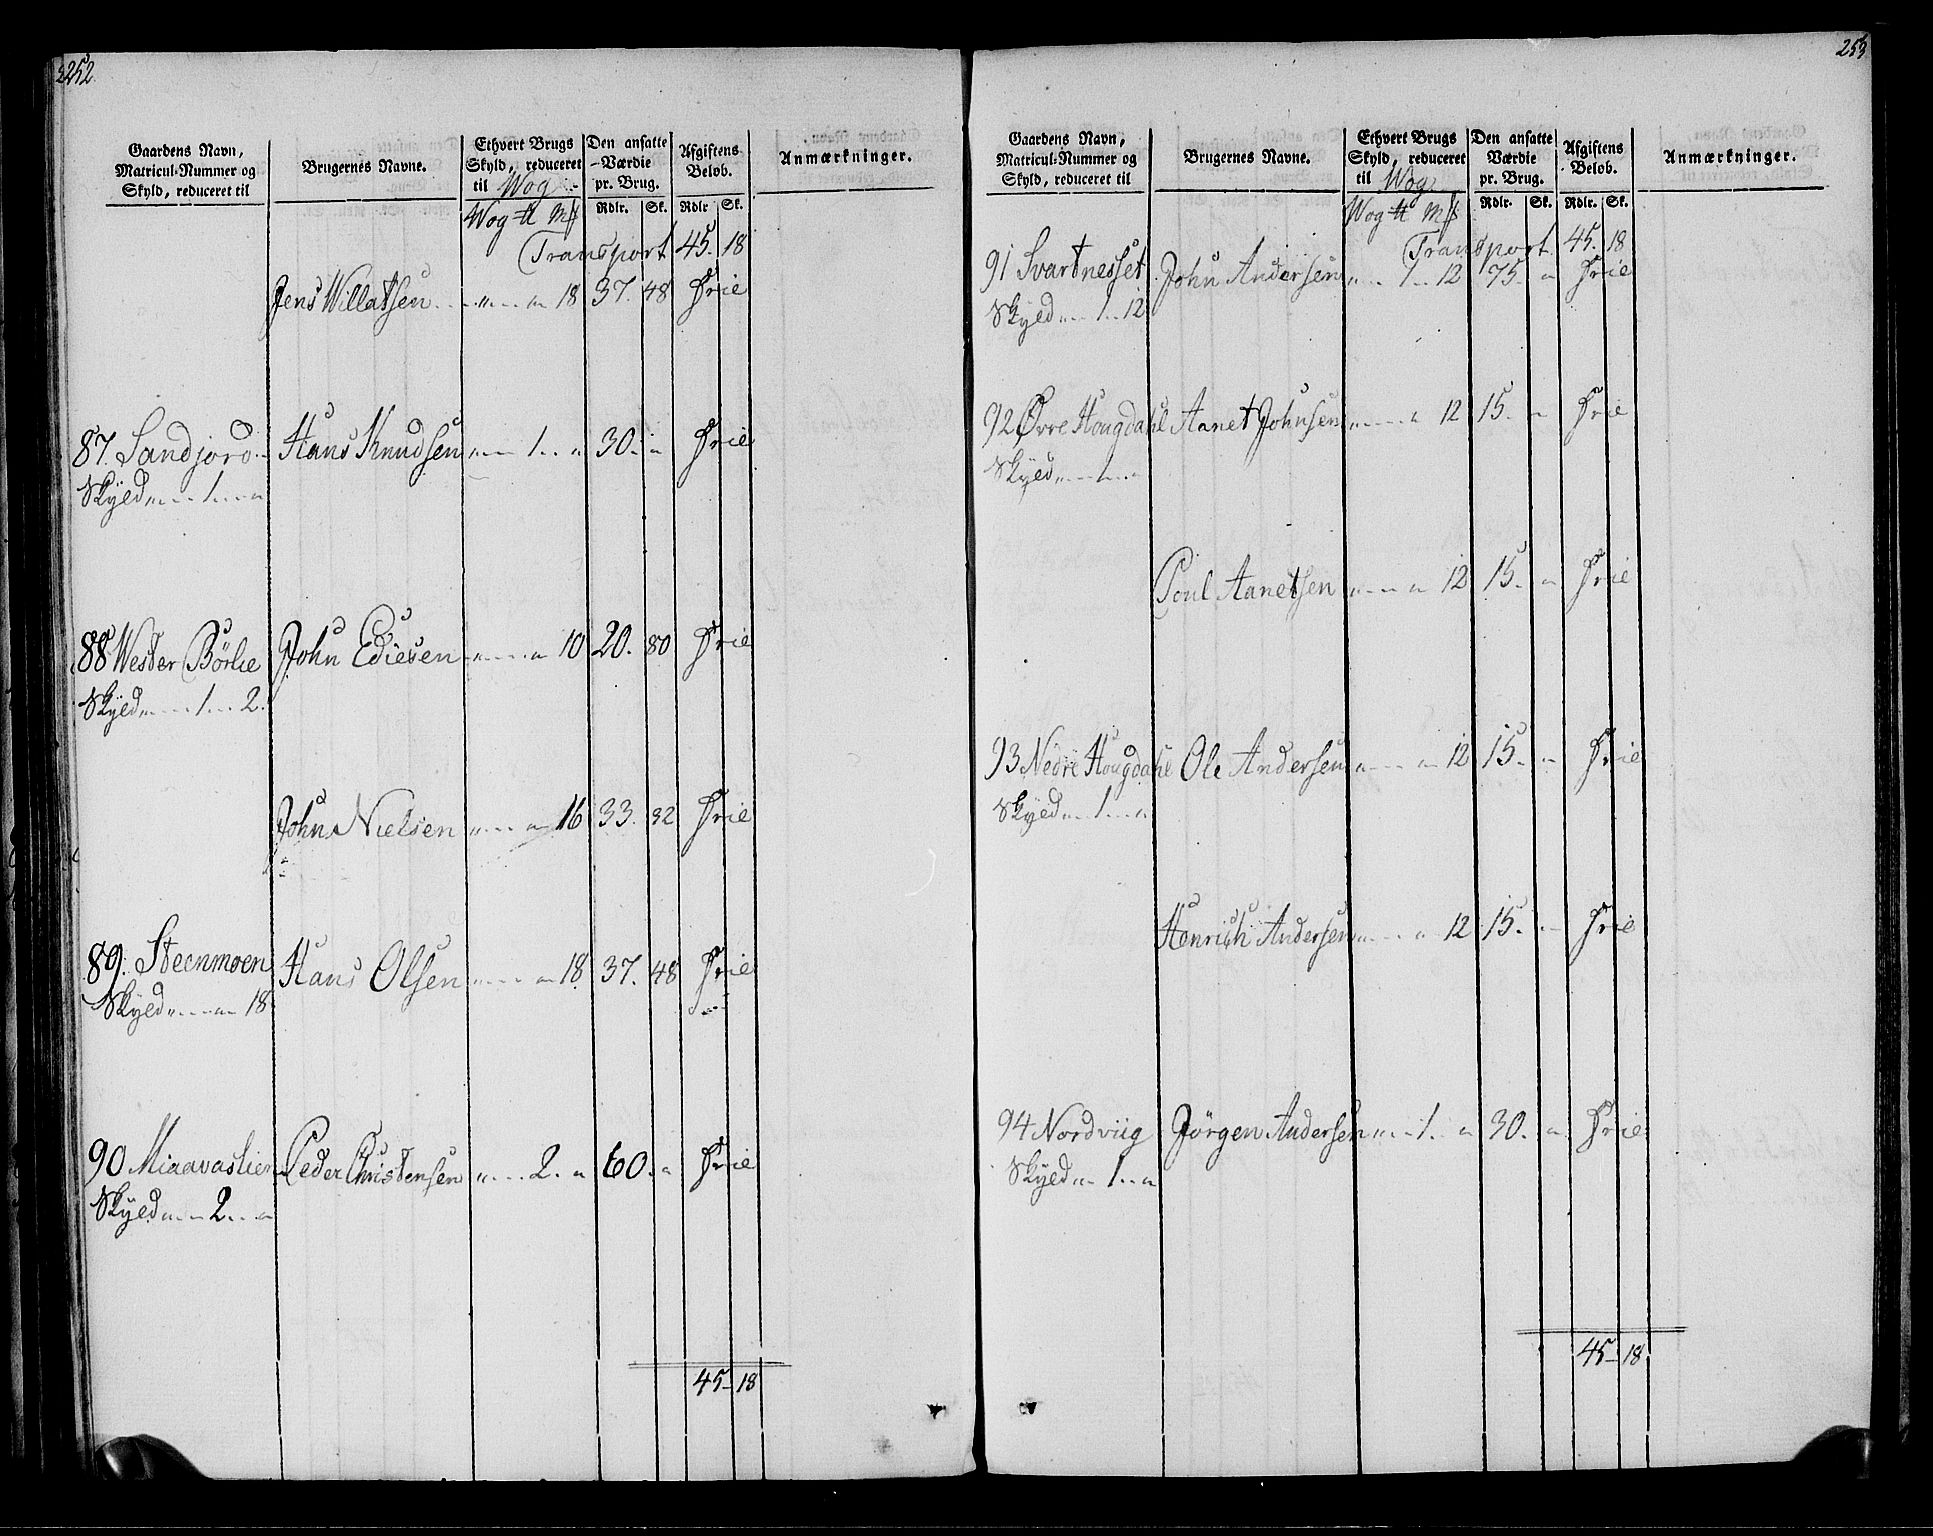 252
Gaardens Navn, Matricul-Nummer og Skyld, reduceret til
Brugernes Navne.
Ethvert Brugs Skyld, reduceret til Wog
Den ansatte Værdie pr. Brug.
Afgiftens Beløb.
Anmærkninger.
Wog ℔ Mk Rdlr. Sk. Rdlr Sk.
Transport 45. 18
Jens Willatsen 18 37. 48 Frie
87. Sandjord Hans Knudsen 1 30. Frie
Skyld 1
88 Wester Börlie John Ediesen 10 20. 80 Frie
Skyld 1 2.
John Nielsen 16 33. 32 Frie
89. Steenmoen Hans Olsen 18 37. 48 Frie
Skyld 18
90 Miaavaslien Peder Christensen 2. 60. Frie
Skyld 2
45 18
253
Gaardens Navn, Matricul-Nummer og Skyld, reduceret til
Brugernes Navne.
Ethvert Brugs Skyld, reduceret til Wog
Den ansatte Værdie pr. Brug.
Afgiftens Beløb.
Anmærkninger.
Wog ℔ Mk Rdlr. Sk. Rdlr. Sk.
Transport 45. 18
91 Svartnesset John Andersen 1 12 75. Frie
Skyld 1 12
92 Øvre Hougdahl Aanet Johnsen 12 15. Frie
Skyld 1
Poul Aanetsen 12 15. Frie
93 Nedre Hougdahl Ole Andersen 12 15. Frie
Skyld 1
Henrich Andersen 12 15. Frie
94 Nordviig Jörgen Andersen 1. 30. Frie
Skyld 1
45 18